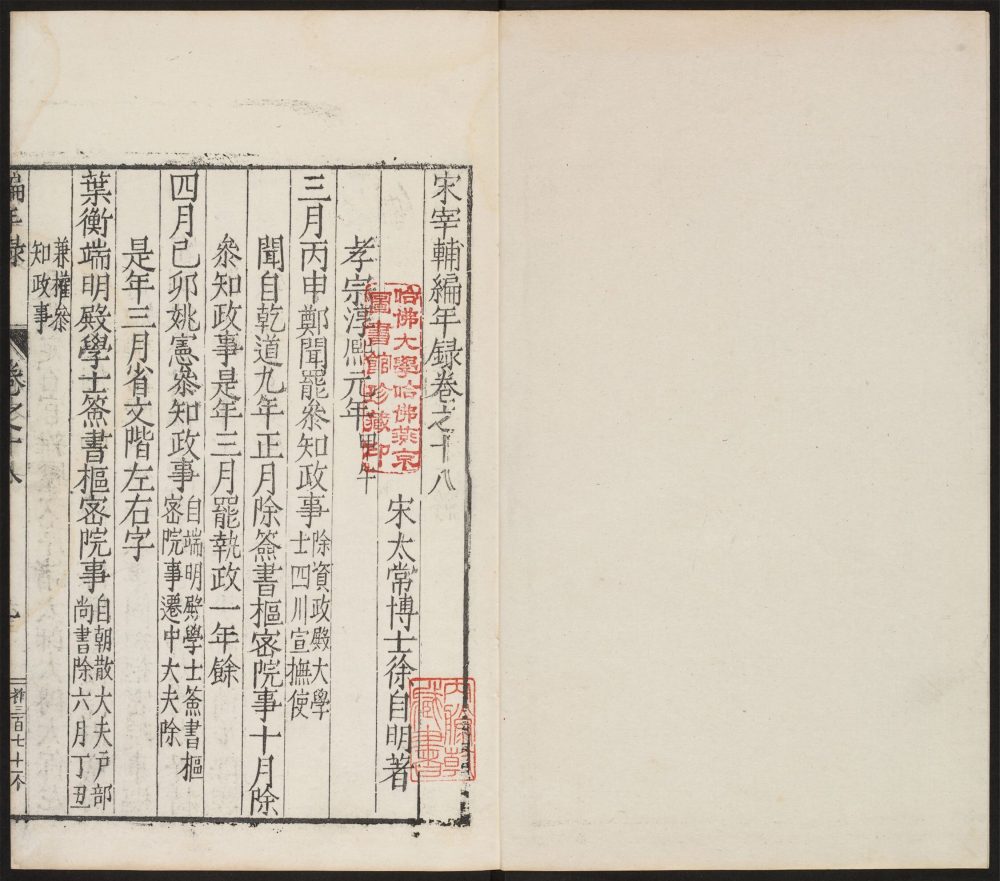 宋宰輔編年録卷之十八
宋太常博士徐自明著
孝宗淳熙元年甲午
三月丙申鄭聞罷叅知政事除資政殿大學
士四川宣撫使
聞自乾道九年正月除簽書樞密院事十月除
叅知政事是年三月罷執政一年餘
四月己卯姚憲叅知政事自端明殿學士簽書樞
密院事遷中大夫除
是年三月省文階左右字
葉衡端明殿學士簽書樞密院事自朝散大夫戶部
尚書除六月丁丑
兼權叅
知政事
編年録 卷之十八
哈佛大學哈佛燕京
圖書館珍藏印
藏書